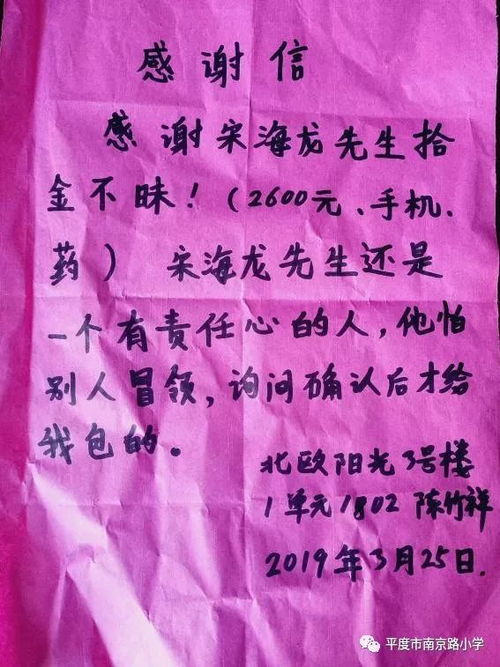 感谢信
感谢宋海龙先生拾
金不昧！（2600元、手机、
药） 宋海龙先生还是
一个有责任心的人，他怕
别人冒领，询问确认后才给
我包的。
北欧阳光3号楼
1单元1802 陈竹祥
2019年3月25日.
平度市南京路小学